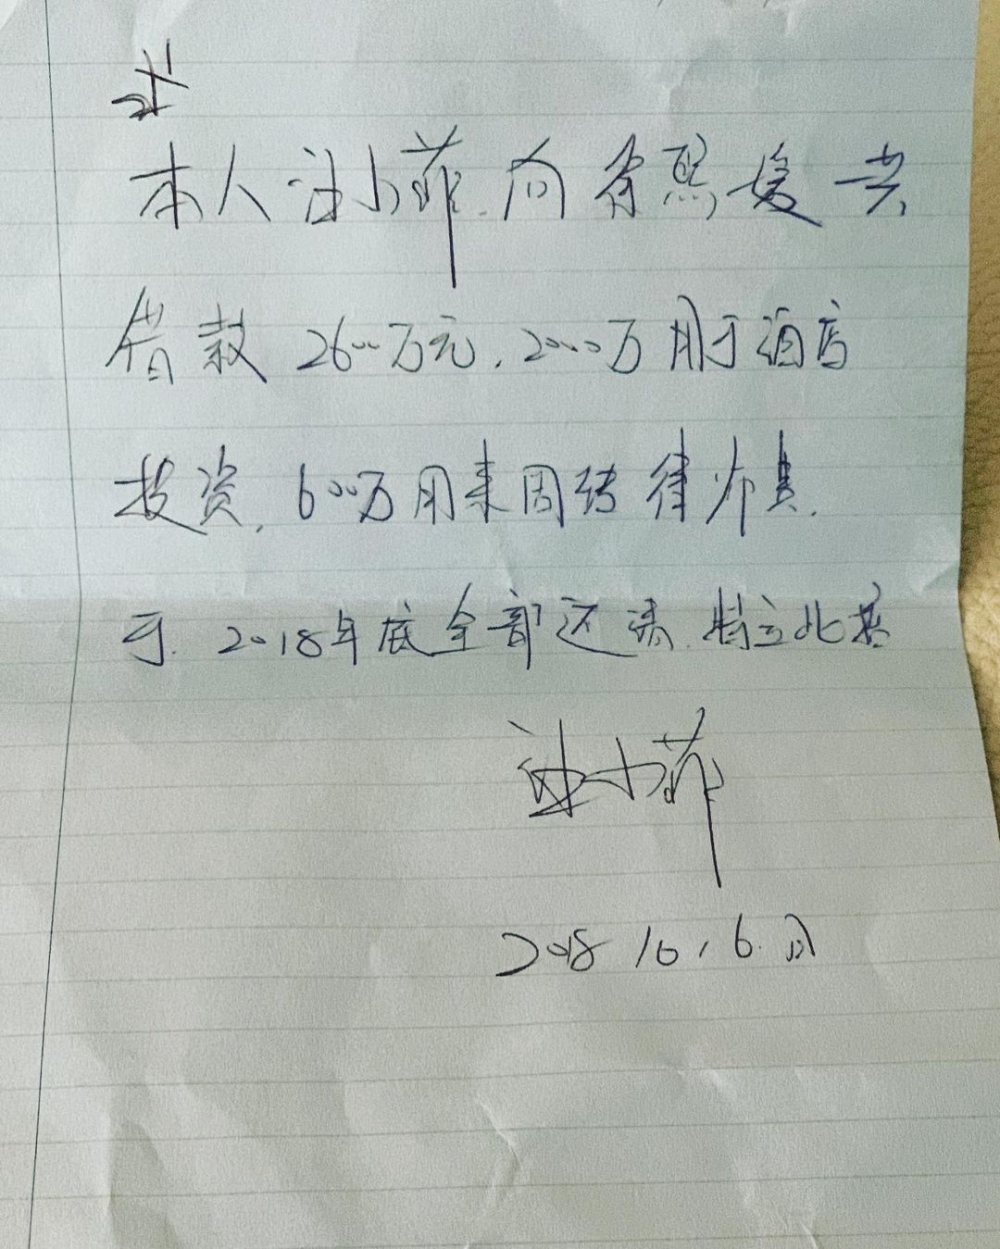 本人汪小菲.向徐熙媛共
借款2600万元,2000万用于酒店
投资,600万用来周转律师费.
于.2018年底全部还清.特立此据
汪小菲
2018 10,6.日